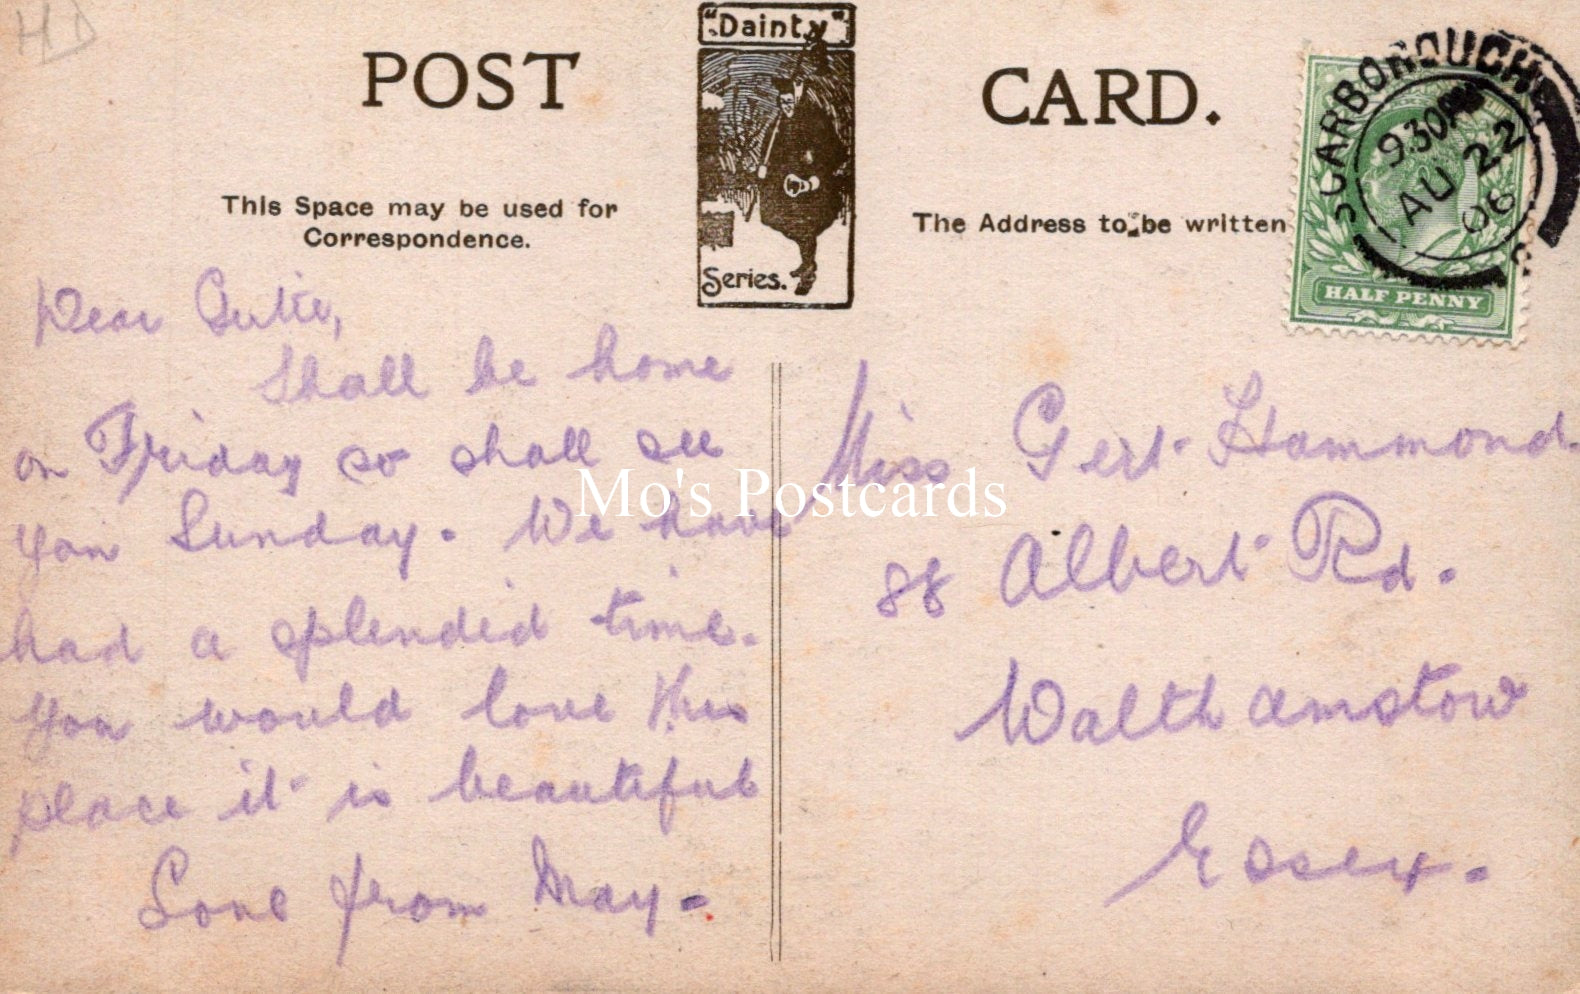 HD
POST
"Dainty"
Series.
CARD.
This Space may be used for
Correspondence.
The Address to be written
SCARBOROUGH
9.30AM
AU 22
06
HALF PENNY
Dear Gertie,
Shall be home
on Friday so shall see
you Sunday. We have
had a splendid time.
you would love this
place it is beautiful
Love from May.
Miss Gert Hammond.
88 Albert Rd.
Walthamstow
Essex.
Mo's Postcards